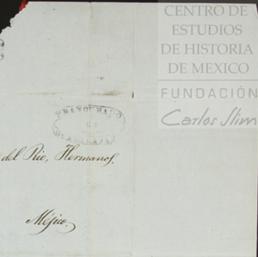 CENTRO DE
ESTUDIOS
DE HISTORIA
DE MEXICO
FUNDACIÓN
Carlos Slim
FRANQUEADO
del Rio, Hermanos.
Méjico.